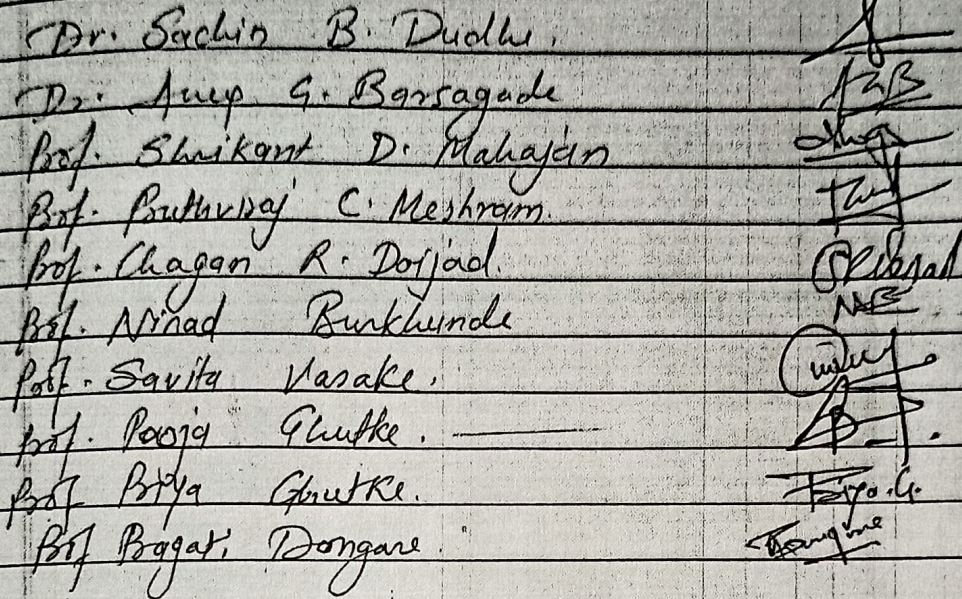 Dr. Sachin B. Dudhe.
Dr. Anup G. Barsagade
Prof. Shrikant D. Mahajan
Prof. Pruthviraj C. Meshram.
Prof. Chagan R. Doijad.
Prof. Ninad Burkhunde NAB
Prof. Savita Vasake.
Prof. Pooja Ghutke.
Prof Priya Ghutke. Priya.G.
Prof Pragati Dongare.